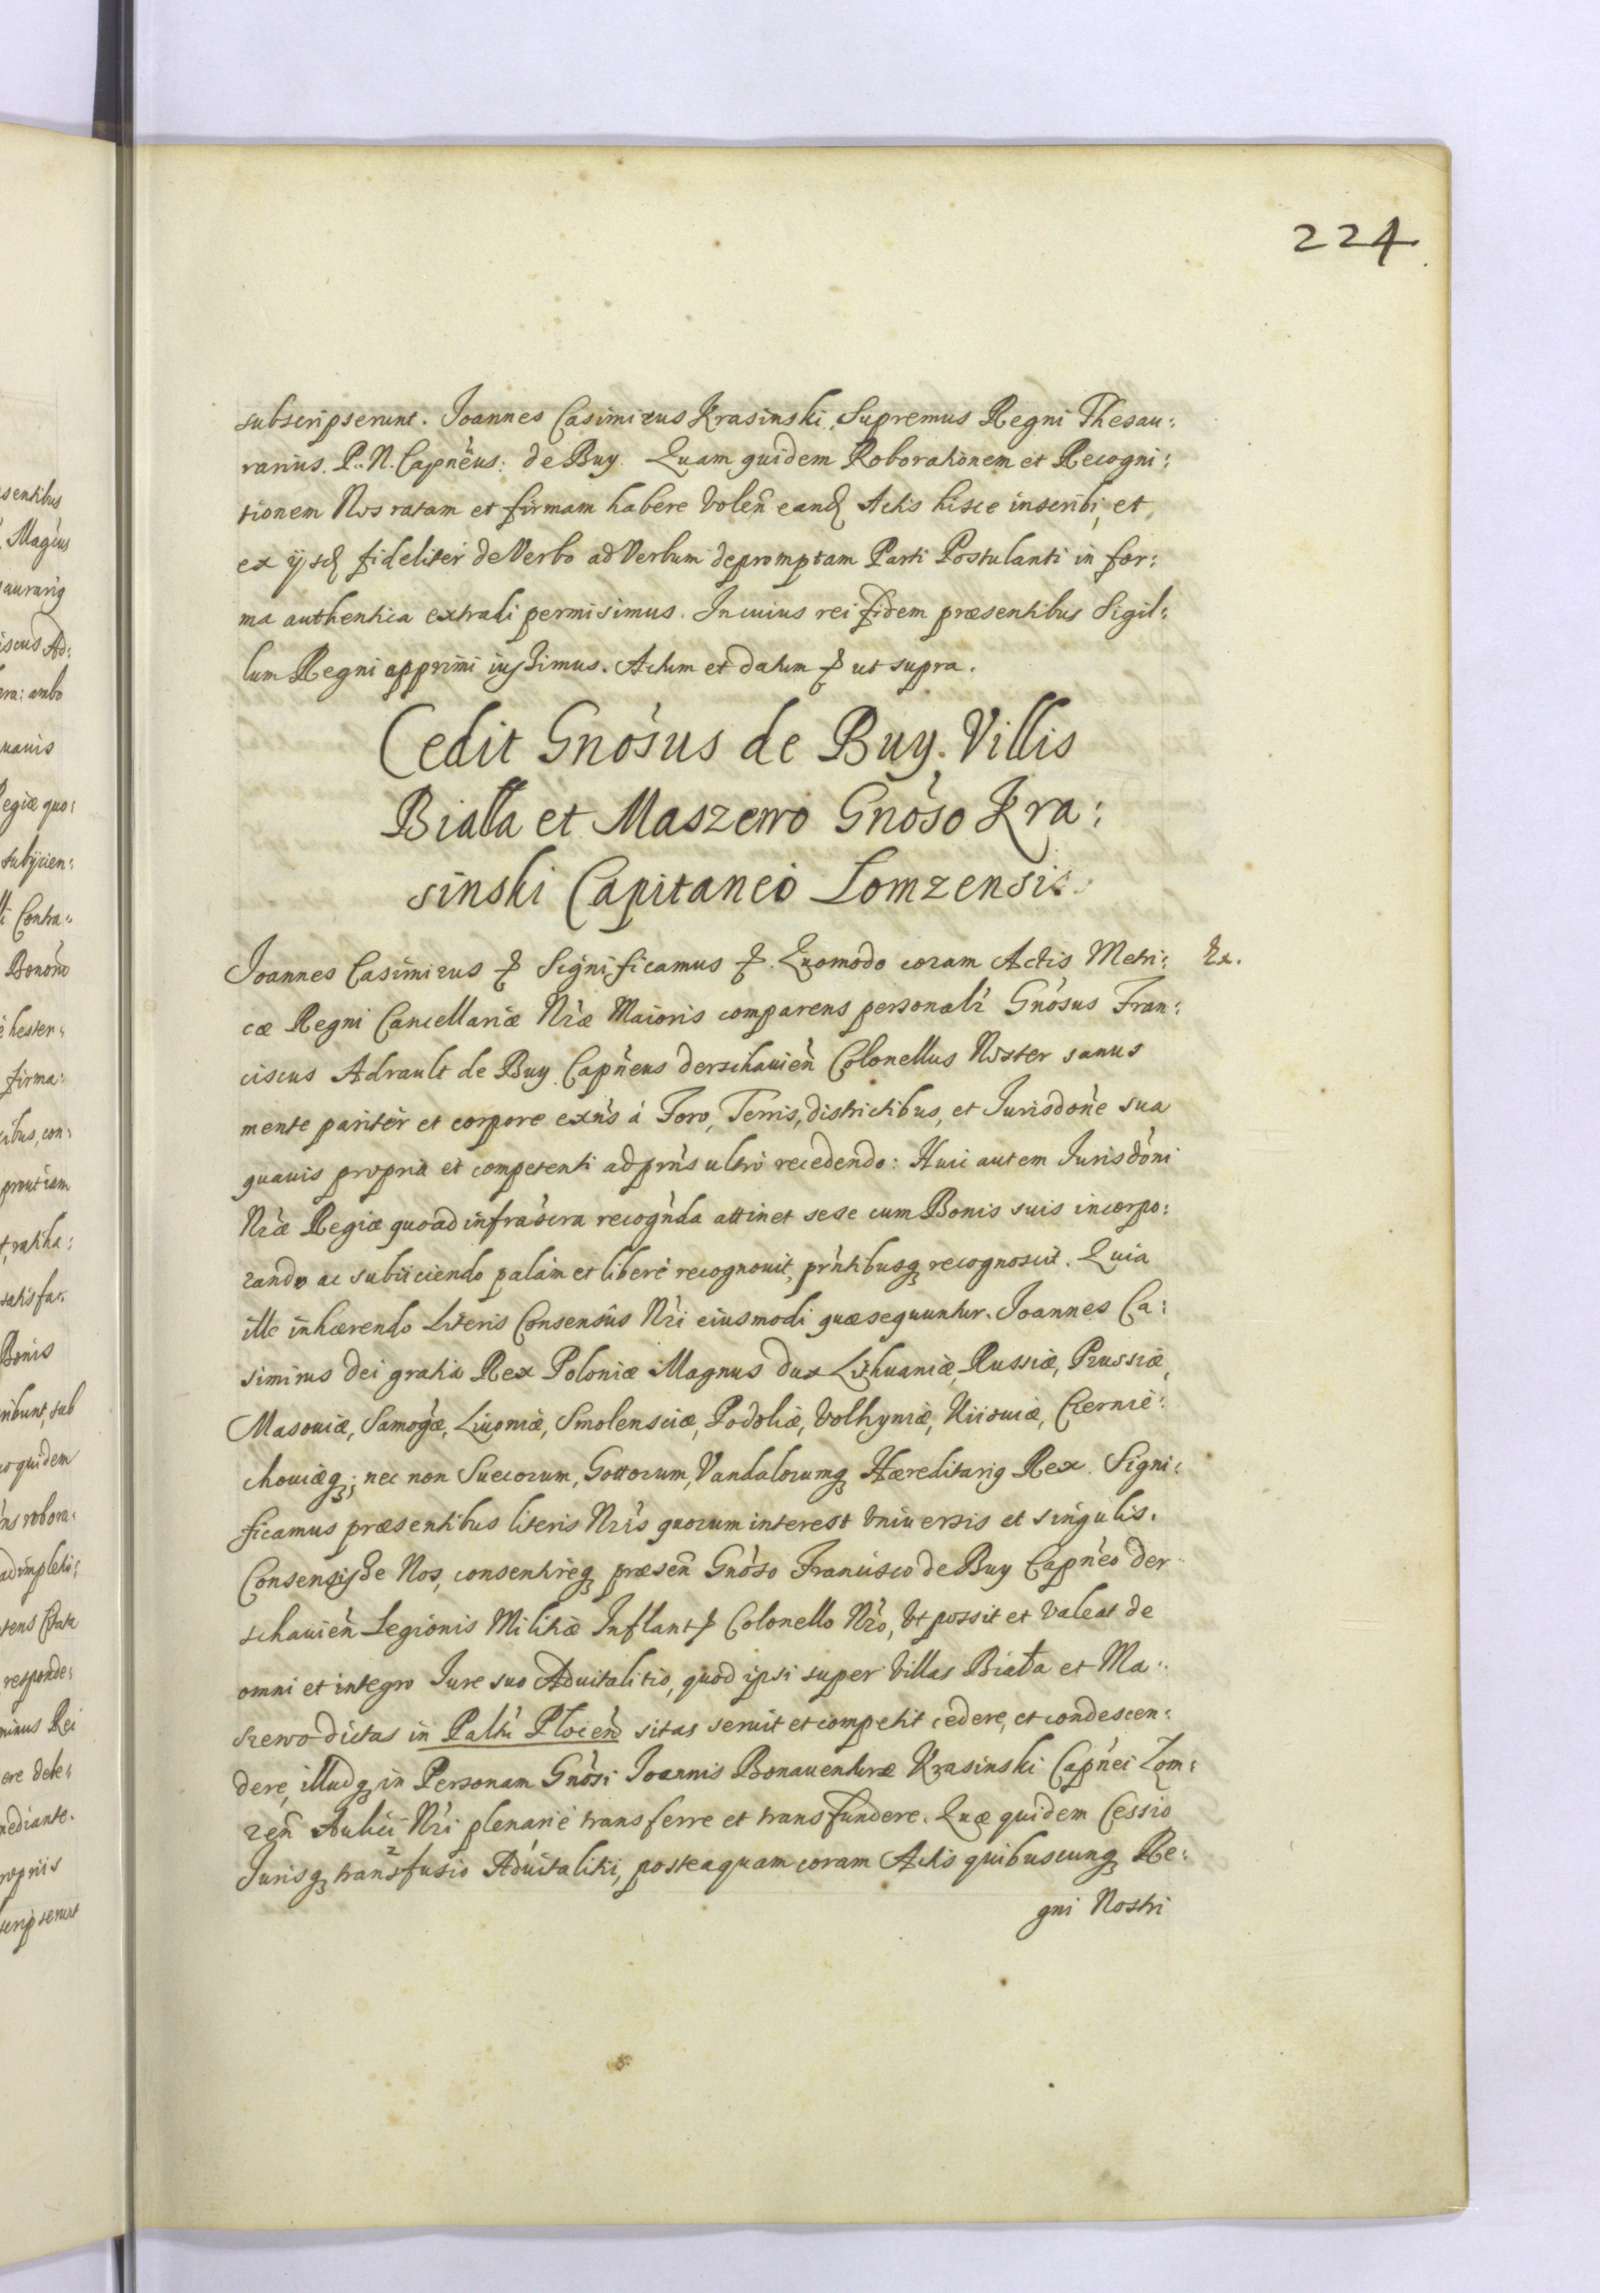 224
subscripserunt. Joannes Casimirus Krasinski, Supremus Regni Thesau:
rarius. P. N. Capnéus: de Buy. Quam quidem Roborationem et Recogni:
tionem Nos ratam et firmam habere volen̄ eand Actis hisce inscribi, et
ex ijsd fideliter de Verbo ad Verbum depromptam Parti Postulanti in for:
ma authentica extradi permisimus. In cuius rei fidem præsentibus Sigil:
lum Regni apprimi iussimus. Actum et datum ut supra.
Cedit Gnósus de Buy. Villis
Bialla et Maszewo Gnóso Kra:
sinski Capitaneó Lomzensi.
Joannes Casimirus Significamus Quomodo coram Actis Metri: Rx.
cæ Regni Cancellariæ Nræ Maioris comparens personalr Gnósus Fran:
ciscus Adrault de Buy Capn̄eus derschauien̄ Colonellus Noster sanus
mente paritér et corpore exn̄s á Foro, Terris, districtibus, et Jurisdóne sua
quauis propria et competenti ad prńs ultró recedendo: Huic autem Jurisdóni
Nræ Regiæ quoad infrascra recogńda attinet sese cum Bonis suis incorpo:
rando ac subiiciendo palám et liberé recognouit, prńtibusq recognoscit. Quia
ille inhærendo Literis Consensûs Nri eiusmodi quæ sequuntur. Joannes Ca:
simirus dei gratia Rex Poloniæ Magnus dux Lithuaniæ, Russiæ, Prussiæ,
Masouiæ, Samogæ, Liuoniæ, Smolensciæ, Podoliæ, Volhyniæ, Kiiouiæ, Czernie:
chouiæq; nec non Suecorum, Gottorum, Vandalorumq Hæreditarig Rex. Signi:
ficamus præsentibus literis Nris quorum interest Vniuersis et singulis.
Consensisse Nos, consentireq præsen̄ Gnóso Francisco de Buy Capn̄eo der
schauien̄ Legionis Militiæ Inflant Colonello Nro, Vt possit et valeat de
omni et integro Jure suo Aduitalitio, quod ipsi super Villas Biała et Ma:
szewo dictas in Paltú Płocen̄ sitas seruit et competit cedere, et condescen:
dere, illudq in Personam Gnósi Joannis Bonauenturæ Krasinski Capn̄ei Lom:
zen̄ Aulici Nri plenarié transferre et transfundere. Quæ quidem Cessio
Jurisq transfusio Aduitalitij, posteaquam coram Actis quibuscunq Re:
gni Nostri